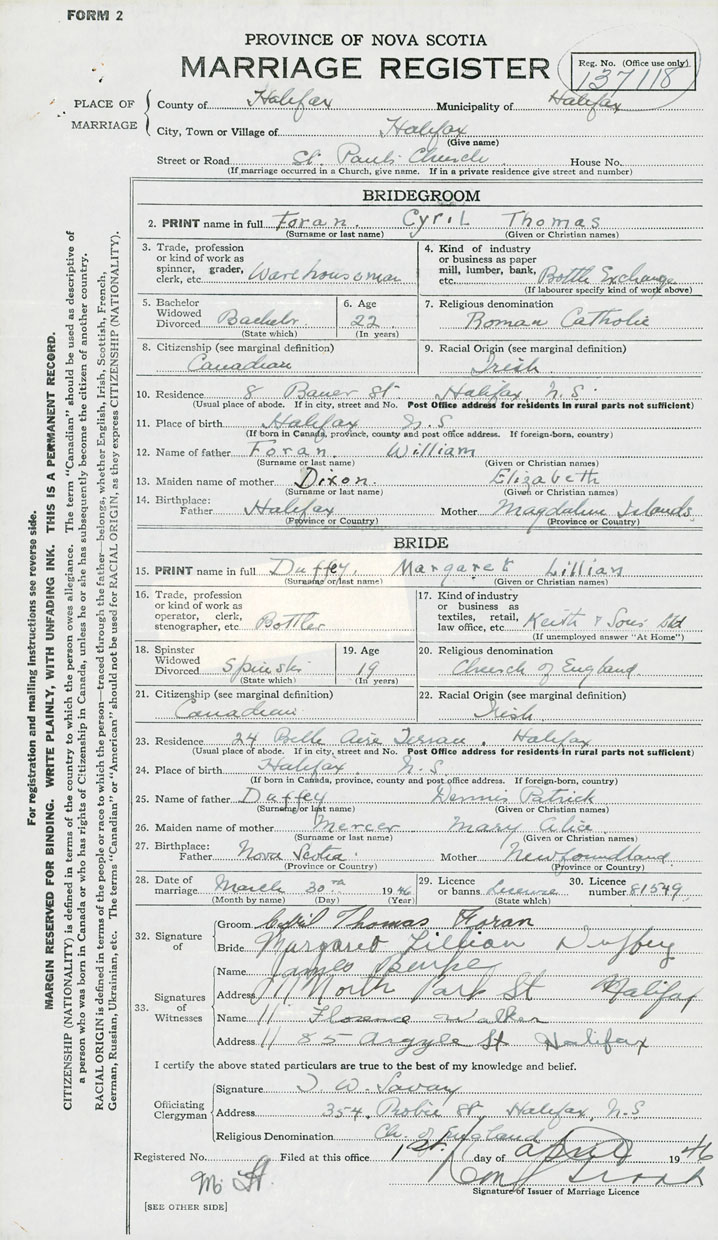 FORM 2
PROVINCE OF NOVA SCOTIA
MARRIAGE REGISTER
Reg. No. (Office use only)
137118
PLACE OF MARRIAGE
County of Halifax Municipality of Halifax
City, Town or Village of Halifax
(Give name)
Street or Road St. Pauls Church House No.
(If marriage occurred in a Church, give name. If in a private residence give street and number)
BRIDEGROOM
2. PRINT name in full Foran. Cyril Thomas
(Surname or last name) (Given or Christian names)
3. Trade, profession or kind of work as spinner, grader, clerk, etc. Warehouseman
4. Kind of industry or business as paper mill, lumber, bank, etc. Bottle Exchange
(If labourer specify kind of work above)
5. Bachelor Widowed Divorced Bachelor
(State which)
6. Age 22
(In years)
7. Religious denomination
Roman Catholic
8. Citizenship (see marginal definition)
Canadian
9. Racial Origin (see marginal definition)
Irish
10. Residence 8 Bauer St. Halifax N.S.
(Usual place of abode. If in city, street and No. Post Office address for residents in rural parts not sufficient)
11. Place of birth Halifax N.S.
(If born in Canada, province, county and post office address. If foreign-born, country)
12. Name of father Foran. William
(Surname or last name) (Given or Christian names)
13. Maiden name of mother Dixon. Elizabeth
(Surname or last name) (Given or Christian names)
14. Birthplace: Father Halifax Mother Magdalen Islands
(Province or Country) (Province or Country)
BRIDE
15. PRINT name in full Duffey. Margaret Lillian
(Surname or last name) (Given or Christian names)
16. Trade, profession or kind of work as operator, clerk, stenographer, etc. Bottler
17. Kind of industry or business as textiles, retail, law office, etc. Keith & Sons Ltd
(If unemployed answer "At Home")
18. Spinster Widowed Divorced
(State which)
19. Age 19
(In years)
20. Religious denomination
Church of England
21. Citizenship (see marginal definition)
Canadian
22. Racial Origin (see marginal definition)
Irish
23. Residence 24 Belle Aire Halifax
(Usual place of abode. If in city, street and No. Post Office address for residents in rural parts not sufficient)
24. Place of birth Halifax N.S.
(If born in Canada, province, county and post office address. If foreign-born, country)
25. Name of father Duffey Dennis Patrick
(Surname or last name) (Given or Christian names)
26. Maiden name of mother Mercer Mary Alice
(Surname or last name) (Given or Christian names)
27. Birthplace: Father Nova Scotia Mother Newfoundland
(Province or Country) (Province or Country)
28. Date of marriage March 30th 1946
(Month by name) (Day) (Year)
29. Licence or banns License
(State which)
30. Licence number 81549
32. Signature of
Groom Cyril Thomas Foran
Bride Margaret Lillian Duffey
33. Signatures of Witnesses
Name James
Address North Park St Halifax
Name Florence Walker
Address 85 Argyle St Halifax
I certify the above stated particulars are true to the best of my knowledge and belief.
Officiating Clergyman
Signature W. Savary
Address 354 Robie St. Halifax, N.S
Religious Denomination Ch. of England
Registered No. Filed at this office 1st. day of April 1946
Signature of Issuer of Marriage Licence
[SEE OTHER SIDE]
For registration and mailing instructions see reverse side.
MARGIN RESERVED FOR BINDING. WRITE PLAINLY, WITH UNFADING INK. THIS IS A PERMANENT RECORD.
CITIZENSHIP (NATIONALITY) is defined in terms of the country to which the person owes allegiance. The term "Canadian" should be used as descriptive of
a person who was born in Canada or who has rights of Citizenship in Canada, unless he or she has subsequently become the citizen of another country.
RACIAL ORIGIN is defined in terms of the people or race to which the person—traced through the father—belongs, whether English, Irish, Scottish, French,
German, Russian, Ukrainian, etc. The terms "Canadian" or "American" should not be used for RACIAL ORIGIN, as they express CITIZENSHIP (NATIONALITY).